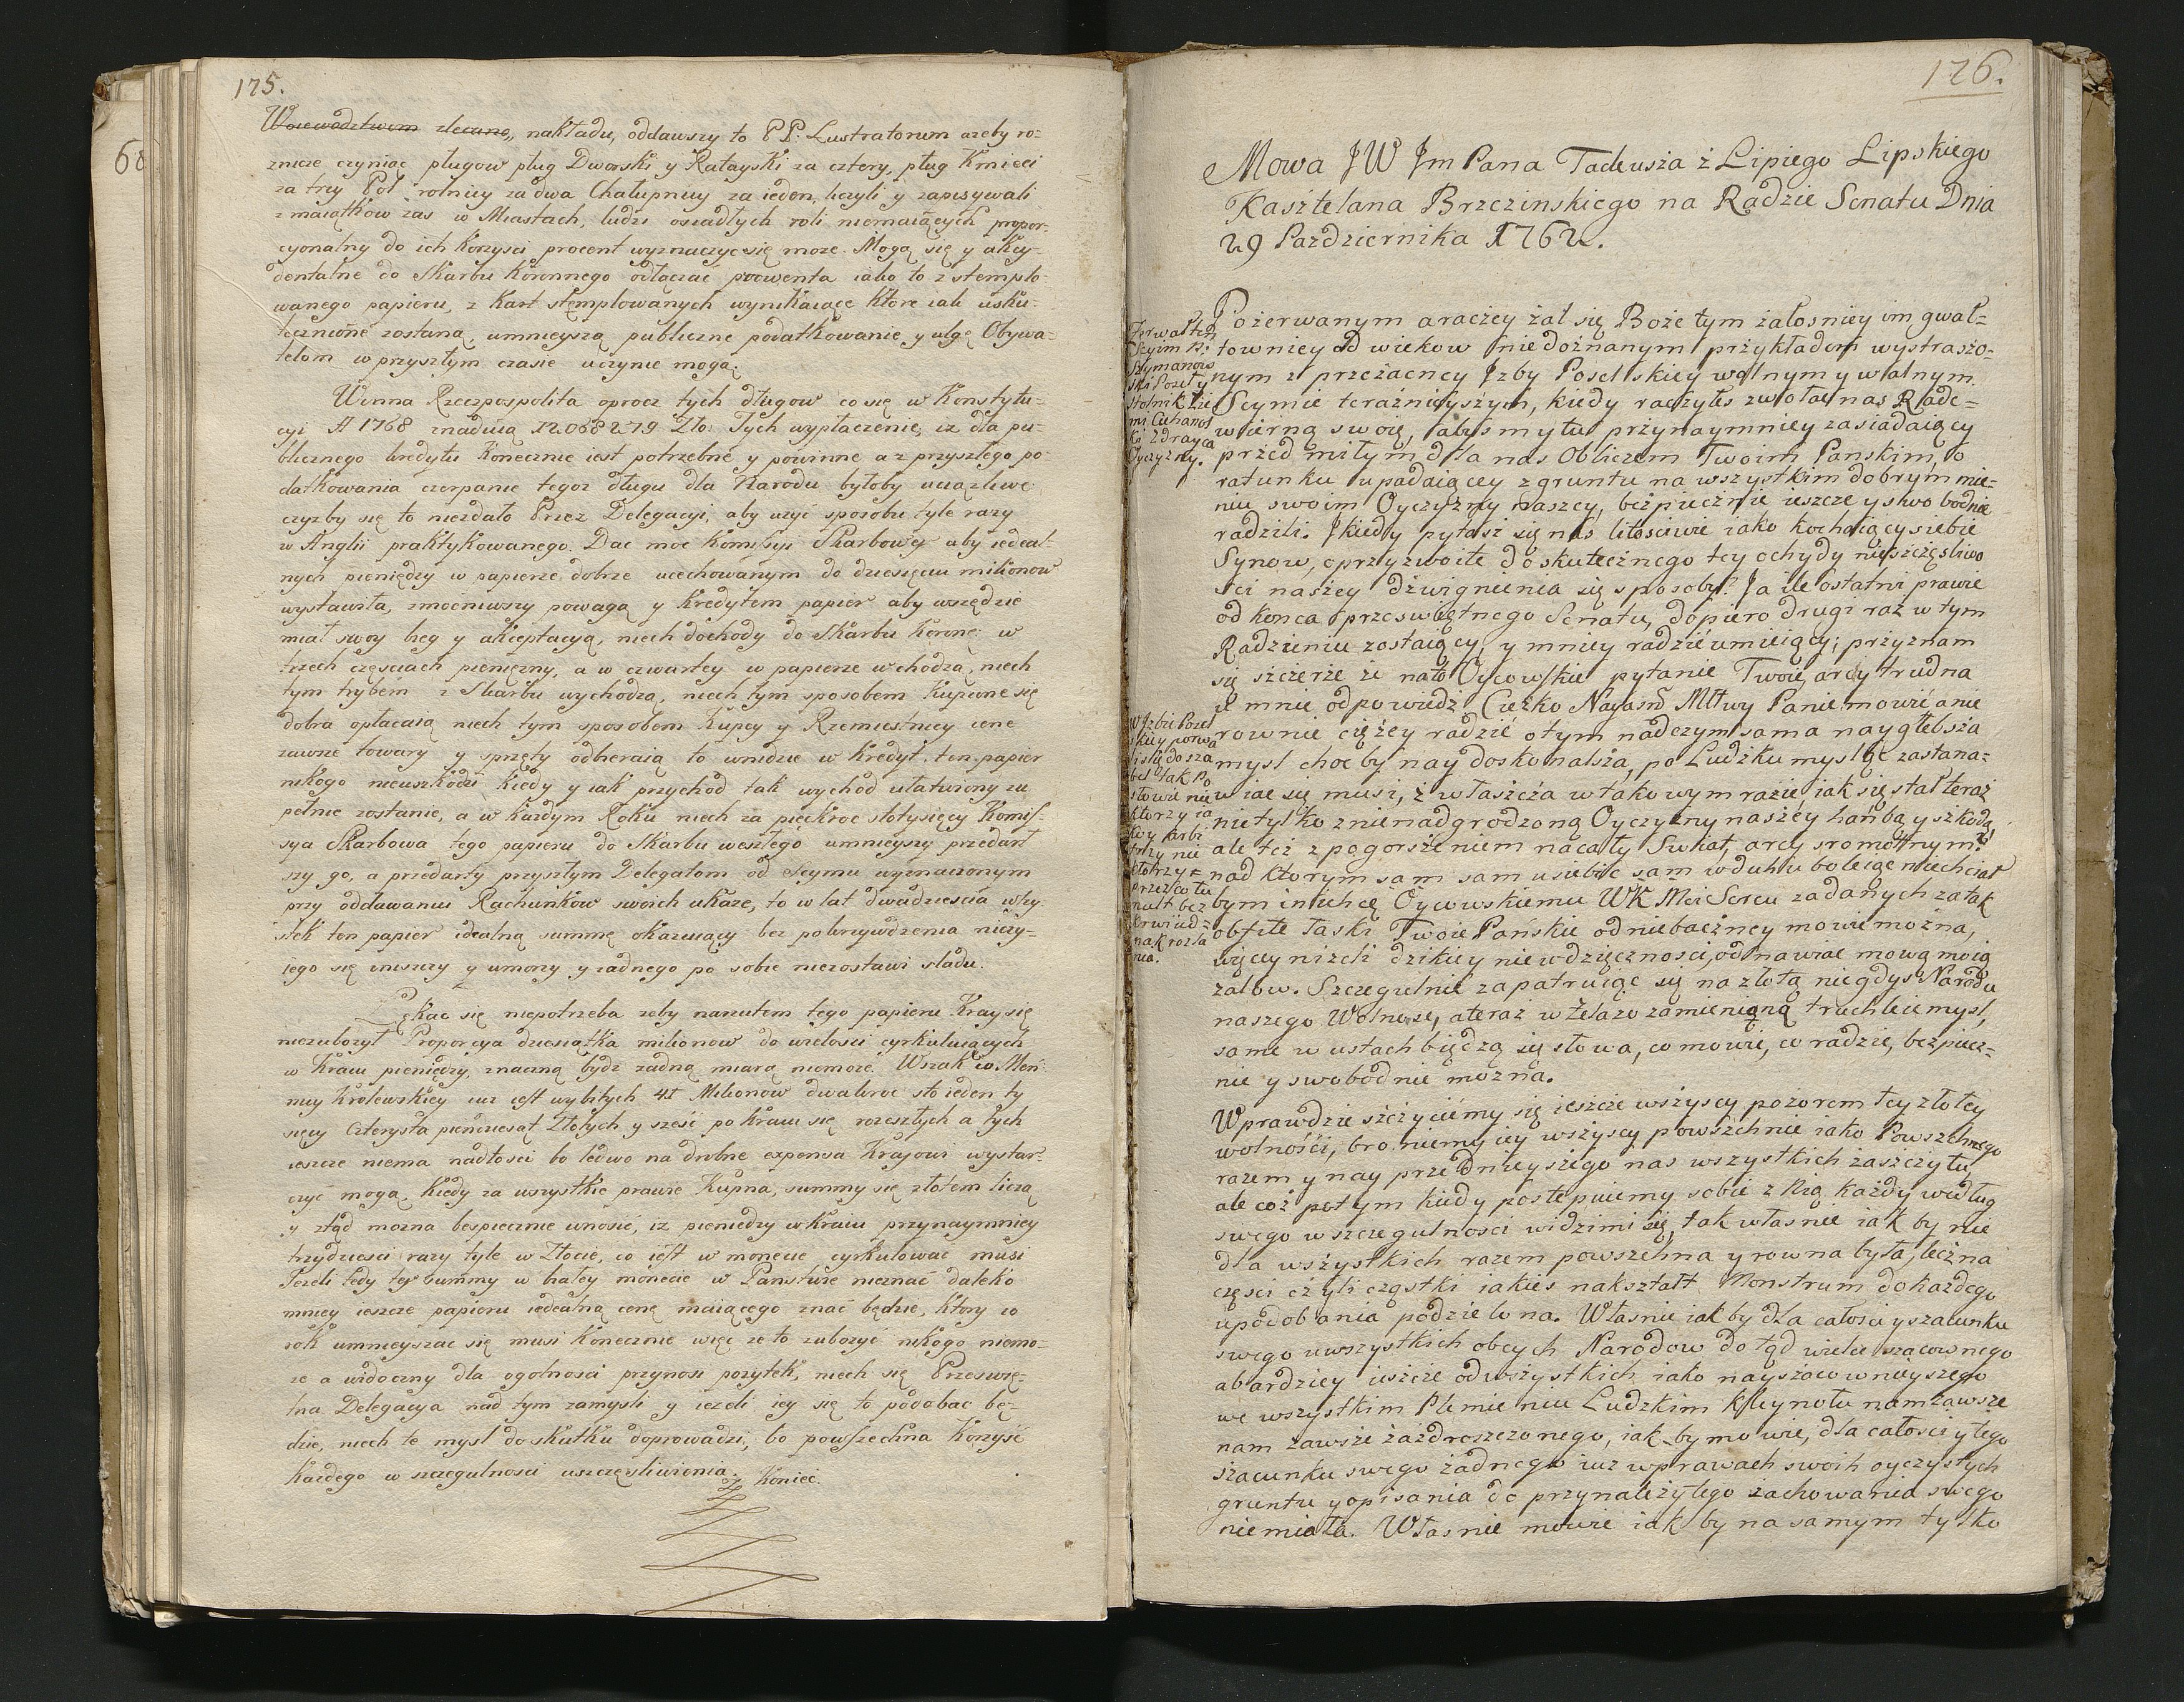 175.
Woiewodztwem zlecane, nakładu, oddawszy to PP. Lustratorum azeby ro=
znicze czyniąc pługow pług Dworski y Ratayski za cztery, pług Kmieci
za trzy Poł rolnicy za dwa Chałupnicy za ieden, liczyli y zapisywali
z maiątkow zas w Miastach, ludzi osiadłych roli niemaiących propor=
cyonalny do ich korzysci procent wyznaczyc się moze. Mogą się y akcy=
dentalne do Skarbu Koronnego odłączać prowenta iako to z stemplo=
wanego papieru, z Kart stęmplowanych wynikaiące które iak usku=
tecznione zostaną, umnieyszą publiczne podatkowanie, y ulgę Obywa=
telom w przyszłym czasie uczynic mogą.
Winna Rzeczpospolita oprocz tych długow co się w Konstytu=
cyi A 1768 znayduią 12068279 Zło: Tych wypłaczenie, iz dla pu=
blicznego kredytu koniecznie iest potrzebne y powinne a z przyszłego po=
datkowania czerpanie tegoz długu dla Narodu byłoby uciązliwe
czyzby się to niezdało Przez Delegacyi, aby uzyć sposobu tyle razy
w Anglii praktykowanego. Dac moc Komissyi Skarbowey aby ideal=
nych pieniędzy w papierze dobrze ucechowanym do dziesięciu milionow
wystawiła, zmocniwszy powagą y kredytem papier aby wszędzie
miał swoy bieg y akceptacyą, niech dochody do Skarbu Koronę: w
trzech częsciach pienięzny, a w czwartey w papierze wchodzą, niech
tym trybem z Skarbu wychodzą, niech tym sposobem kupione się
dobra opłacaią niech tym sposobem Kupcy y Rzemieslnicy cene
zawsze towary y sprzęty odbieraią to wnidzie w kredyt. ten papier
nikogo nieuszkodzi kiedy y iak przychod tak wychod ułatwiony zu
pełnie zostanie, a w kazdym Roku niech za pięckroc stotysięcy Komis=
sya Skarbowa tego papieru do Skarbu weszłego umnieyszy przedarł
szy go, a przedarty przyszłym Delegatom od Seymu wyznaczonym
przy oddawaniu Rachunków swoich ukaze, to w lat dwadziescia wszy=
stek ten papier idealną summę okazuiący bez pokrzywdzenia niczy=
iego się zniszczy y umorzy y zadnego po sobie niezostawi sladu.
Lękac się niepotrzeba zeby narzutem tego papieru Kray się
niezubozył Proporcya dziesiątka milionow do wielości cyrkuluiących
w Kraiu pieniędzy, znaczną bydz zadną miarą niemoze. Wszak w Men=
nicy Krolewskiey iuz iest wybitych 41 Milionow dwakroc sto ieden ty
sięcy Czterysta piendziesąt Złotych y sześć po kraiu się rozeszłych a tych
ieszcze niema nadtosci bo ledwo na drobne expensa Krajowi wystar=
czyć mogą, kiedy za wszystkie prawie Kupna, summy się złotem liczą
y ztąd mozna bespiecznie wnosić, iz pieniedzy w kraiu przynaymniey
trzydziesci razy tyle w Złocie, co iest w monecie cyrkulować musi
Jezeli tedy tey summy w białey monecie w Państwie nieznać daleko
mniey ieszcze papieru idealną cenę maiącego znać będzie, ktory co
rok umnieyszac się musi koniecznie więc ze to zubozyć nikogo niemo=
ze a widoczny dla ogolnosci przynosi pozytek, niech się Przeswię=
tna Delegacya nad tym zamysli y iezeli iey się to podobac bę=
dzie, niech te mysl do skutku doprowadzi, bo powszechna Korzyść
kazdego w szczegulnosci uszczęsliwienia. Koniec.
176.
Mowa JW Jm Pana Tadeusza z Lipiego Lipskiego
Kasztelana Brzezinskiego na Radzie Senatu Dnia
29 Pazdziernika 1762.
Pozerwanym araczey zal się Boze tym załosniey im gwał=
towniey od wiekow niedoznanym przykładem wystraszo=
nym z przezacney Izby Poselskiey wolnym y walnym
Seymie teraznieyszym, kiedy raczyłes zwołac nas Radę=
wierną swoię, abysmy tu przynaymniey zasiadaiący
przed miłym dla nas Obliczem Twoim Panskim, o
ratunku upadaiącey z gruntu na wszystkim dobrym mie=
niu swoim Oyczyzny naszey, bezpiecznie ieszcze y swobodnie
radzili. I kiedy pytasz się nas litosciwie iako kochaiący siebie
Synow, o przyzwoite do skutecznego tey ochydy nieszczęsliwo
sci naszey dzwignienia się sposoby? Ja ile ostatni prawie
od konca przeswiętnego Senatu, dopiero drugi raz w tym
Radzieniu zostaiący, y mniey radzić umieiący; przyznam
się szczerze ze nato Oycowskie pytanie Twoie arcy trudna
u mnie odpowiedz. Ciezko Nayasn Mttwy Panie mowić anie
rownie ciężey radzić o tym nadczym sama naygłebsza
mysl choc by nay doskonalsza, po Ludzku mysląc zastana=
wiac się musi, z własżcza w takowym razie iak się stał teraz
nietylko znienadgrodzoną Oyczyzny naszéy hańbą y szkodą,
ale tez z pogorszeniem nacały Swiat, arcy sromotnym:
nad ktorym sam sam usiebie sam w duhu boleiąc niechciał
bym iniechcę Oycowskiemu WK Mci Sercu zadanych za tak
obfite łaski Twoie Pańskie od niebaczney mowic mozna,
więcey nizeli dzikiey niewdzięcznosci, odnawiac mową moią
zalow. Szczegulnie zapatruiąc się na złotą niegdys Narodu
naszego Wolnosc, a teraz w żelazo zamienioną truchleie mysl,
same w ustach biędzą się słowa, co mowic, co radzic, bezpiecz=
nie y swobodnie mozna.
Wprawdzie szczyciémy się ieszcze wszyscy pozorem tey złotey
wolnośći, broniemy iey wszyscy powszechnie iako Powszechnego
razem y nay przednieyszego nas wszystkich zaszczytu,
ale coż potym kiedy postepuiemy sobie z nią kazdy według
swego w szczegulnosci widzimi się, tak własnie iak by nie
dla wszystkich razem powszechna y rowna była, lecz na
części czyli cząstki iakies nakształt Monstrum do kazdego
upodobania podzielona. Własnie iak by dla całosci y szacunku
swego u wszystkich obcych Narodow do tąd wielce szacownego
abardziey ieszcze odwszystkich iako nayszacownieyszego
we wszystkim Plemieniu Ludzkim Kleynotu nam zawsze
nam zawsze zazdroszczonego, iak by mowie, dla całosci y tego
szacunku swego zadnego iuz w prawach swoich oyczystych
gruntu y opisania do przynależytego zachowania swego
niemiała. Własnie mowie iak by na samym tylko
Zerwał ten
Seyim P.
Szymanow
ski Poseł y
Stolnik Zie
mi Ciehanos
ki Zdrayca
Oyczyzny.
W Izbie Posel
skiey porwa
li się do sza
bel tak Po
słowie nie
ktorzy ia
ko y Arbi
trzy nie
ktorzy=
przez co tu
mult bez
krwi iedz
nak rozla
nia.